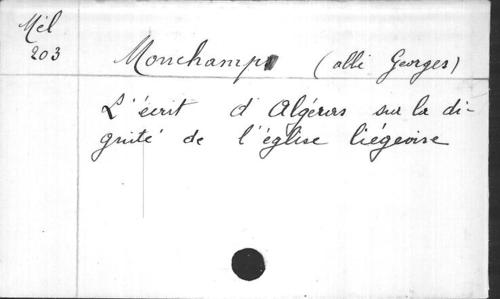 Mél
203
Monchamp (abbé Georges)
L'écrit d'Algérus sur la di-
gnité de l'église liégeoise